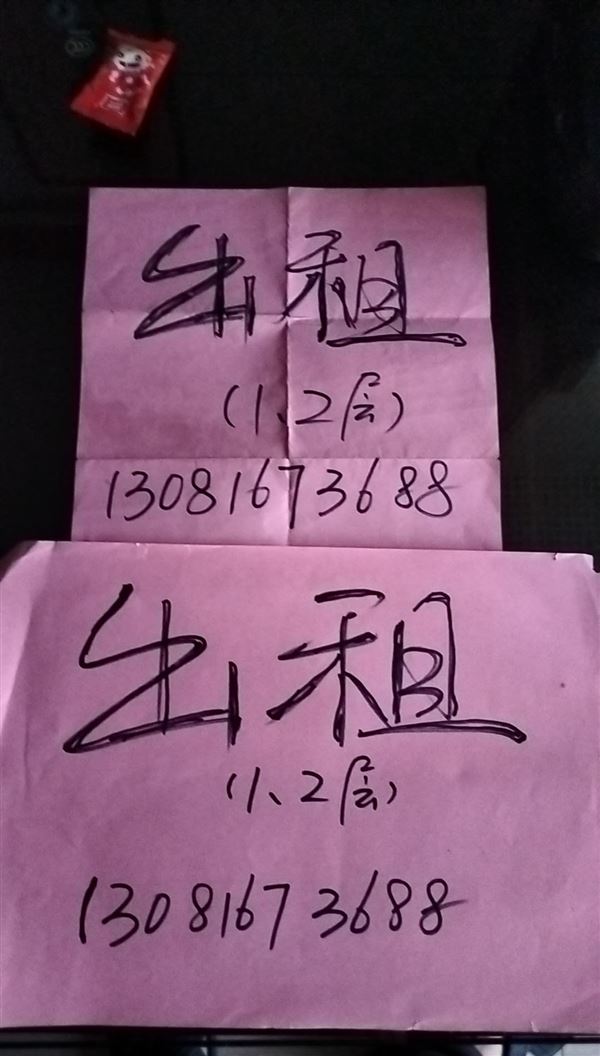 出租
(1、2层)
13081673688
出租
(1、2层)
13081673688